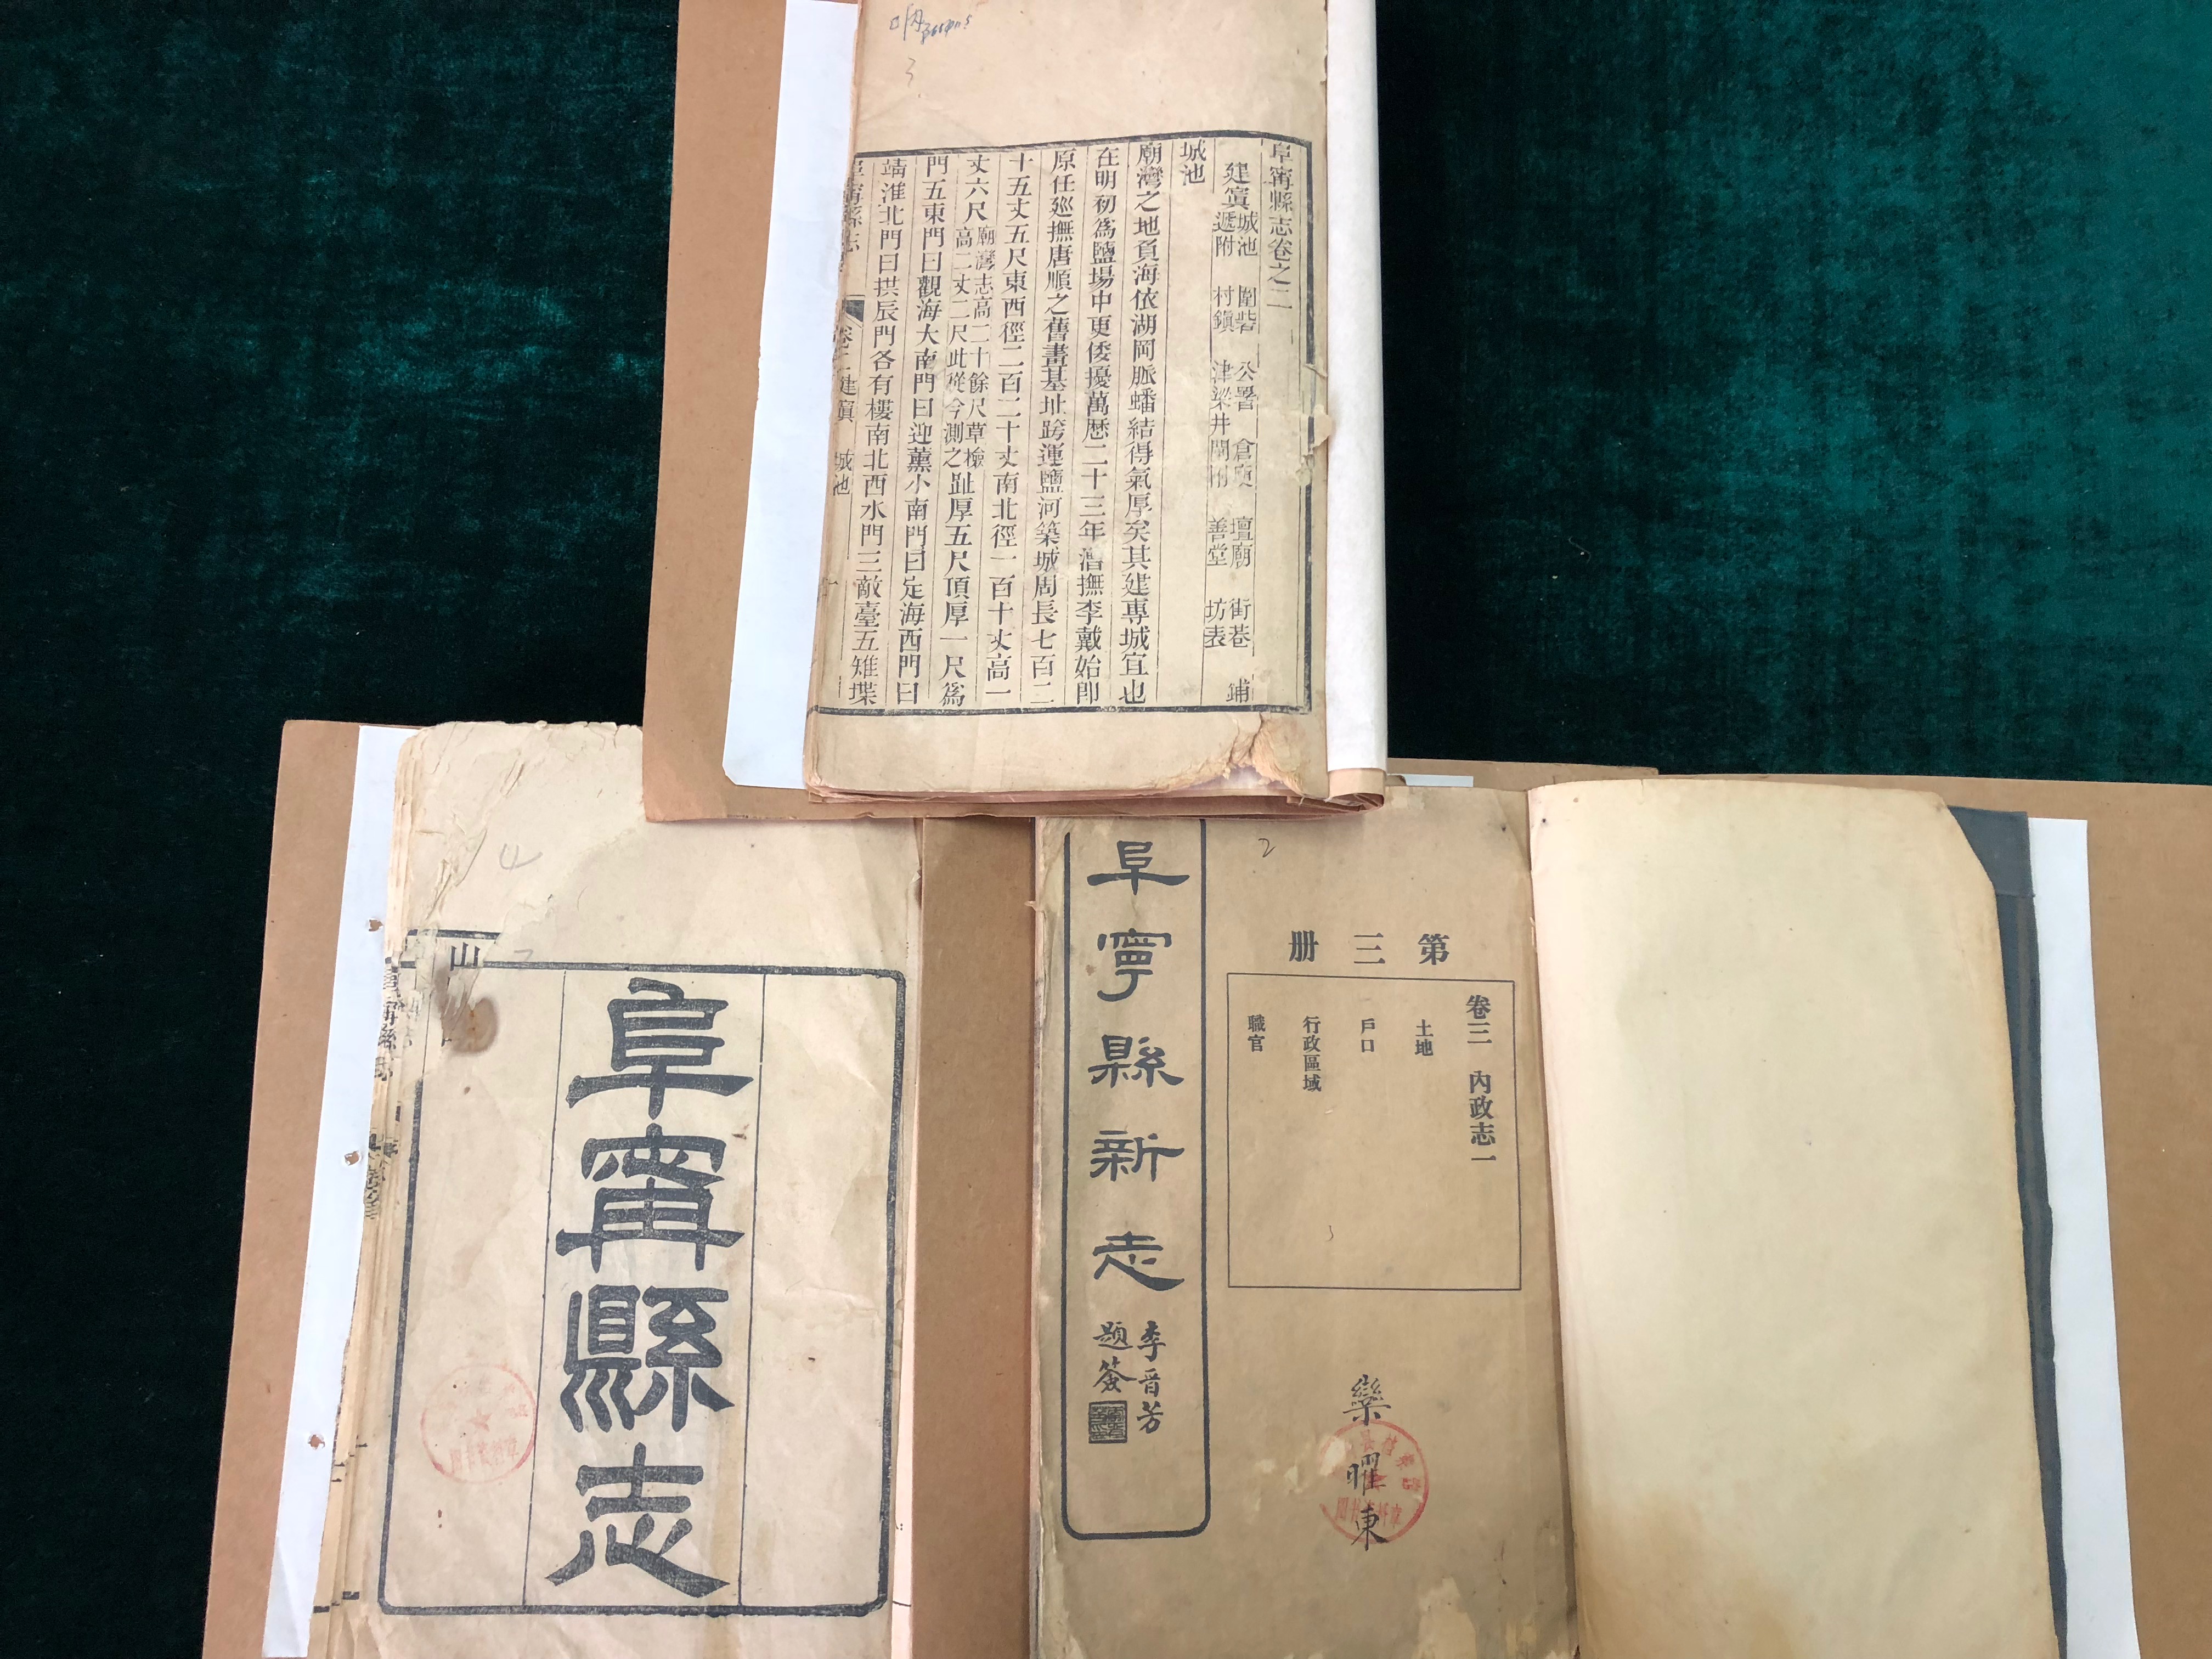 3
阜甯縣志卷之二
建寘 城池 圍砦 公署 倉庾 壇廟 街巷 鋪
遞附 村鎮 津梁井閘附 善堂 坊表
城池
廟灣之地負海依湖岡脈蟠結得氣厚矣其建專城宜也
在明初為鹽場中更倭擾萬歷二十三年漕撫李戴始即
原任廵撫唐順之舊畫基址跨運鹽河築城周長七百二
十五丈五尺東西徑二百二十丈南北徑一百十丈高一
丈六尺 廟灣志高二十餘尺草檢
高二丈二尺此從今測之 趾厚五尺頂厚一尺為
門五東門曰觀海大南門曰迎薰小南門曰定海西門曰
靖淮北門曰拱辰門各有樓南北西水門三敵臺五雉堞
阜甯縣志 卷二 建寘 城池
4
山
阜甯縣志
2
第三册
卷三 內政志一
土地
戶口
行政區域
職官
阜寧縣新志
李晉芳
題簽
欒曜東